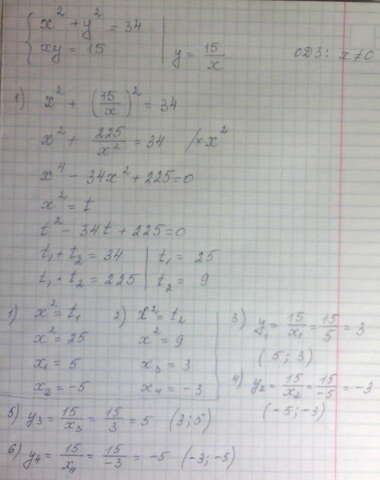 { x² + y² = 34
xy = 15 | y = 15/x ОДЗ: x ≠ 0
1) x² + (15/x)² = 34
x² + 225/x² = 34 /× x²
x⁴ − 34x² + 225 = 0
x² = t
t² − 34t + 225 = 0
t₁ + t₂ = 34 | t₁ = 25
t₁ · t₂ = 225 | t₂ = 9
1) x² = t₁
x² = 25
x₁ = 5
x₂ = −5
2) x² = t₂
x² = 9
x₃ = 3
x₄ = −3
3) y₁ = 15/x₁ = 15/5 = 3
(5; 3)
4) y₂ = 15/x₂ = 15/−5 = −3
(−5; −3)
5) y₃ = 15/x₃ = 15/3 = 5 (3; 5)
6) y₄ = 15/x₄ = 15/−3 = −5 (−3; −5)